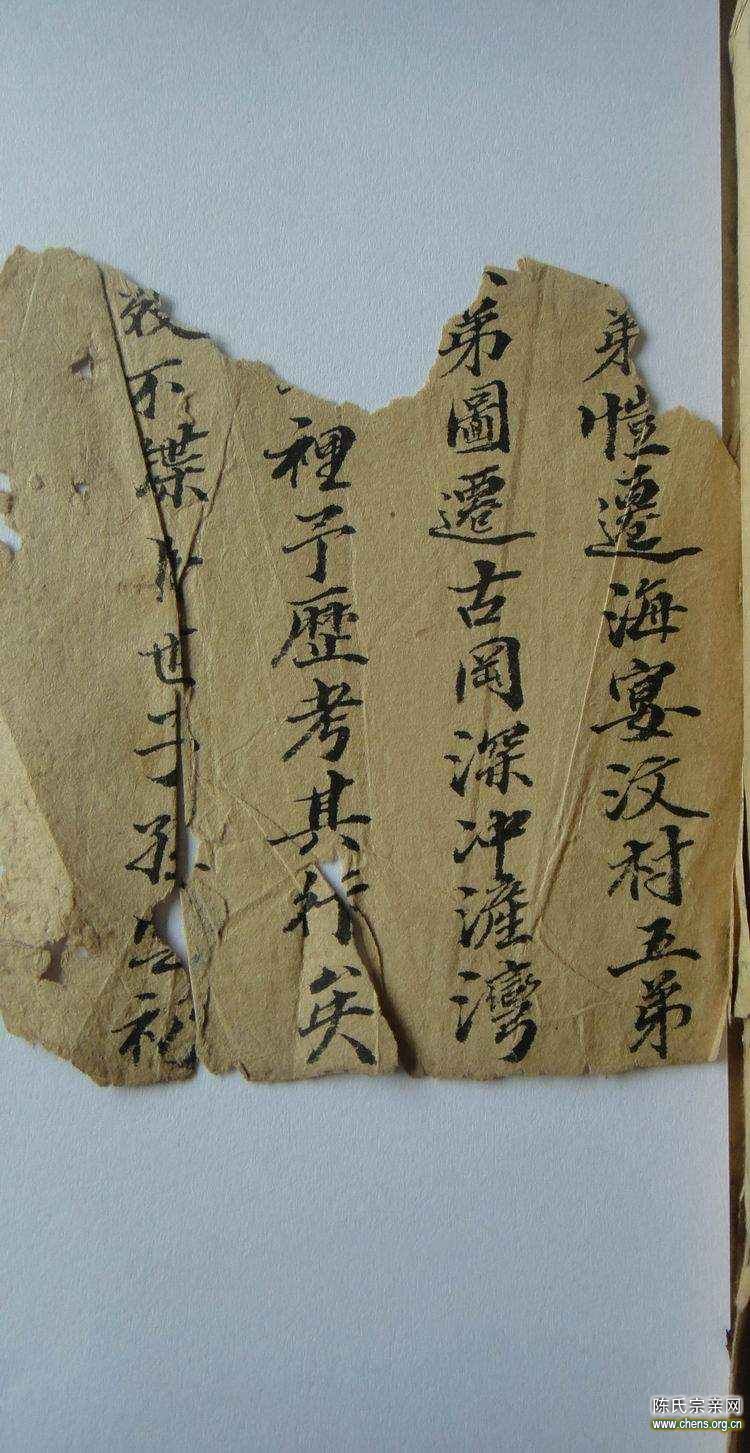 弟愷遷海宴汶村五弟
弟圖遷古岡深冲漄灣
裡予歷考其行矣
不 世子孫
陈氏宗亲网
www.chens.org.cn